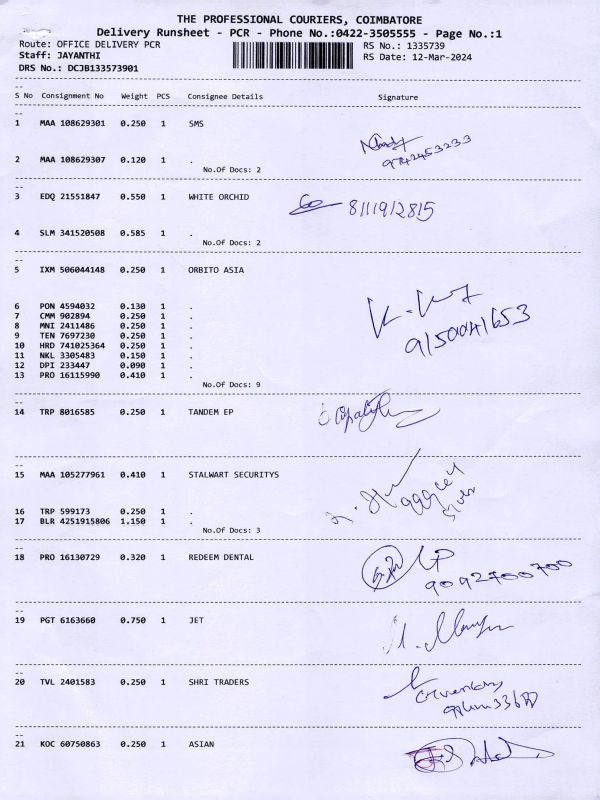 THE PROFESSIONAL COURIERS, COIMBATORE
Delivery Runsheet - PCR - Phone No.:0422-3505555 - Page No.:1
Route: OFFICE DELIVERY PCR RS No.: 1335739
Staff: JAYANTHI RS Date: 12-Mar-2024
DRS No.: DCJB133573901
S No Consignment No Weight PCS Consignee Details Signature
1 MAA 108629301 0.250 1 SMS
9742453233
2 MAA 108629307 0.120 1 .
No.Of Docs: 2
3 EDQ 21551847 0.550 1 WHITE ORCHID
8111912815
4 SLM 341520508 0.585 1 .
No.Of Docs: 2
5 IXM 506044148 0.250 1 ORBITO ASIA
6 PON 4594032 0.130 1 .
7 CMM 902894 0.250 1 .
8 MNI 2411486 0.250 1 .
9 TEN 7697230 0.250 1 .
10 HRD 741025364 0.250 1 .
11 NKL 3305483 0.150 1 .
12 DPI 233447 0.090 1 .
13 PRO 16115990 0.410 1 .
No.Of Docs: 9
14 TRP 8016585 0.250 1 TANDEM EP
15 MAA 105277961 0.410 1 STALWART SECURITYS
16 TRP 599173 0.250 1 .
17 BLR 4251915806 1.150 1 .
No.Of Docs: 3
18 PRO 16130729 0.320 1 REDEEM DENTAL
9092700700
19 PGT 6163660 0.750 1 JET
20 TVL 2401583 0.250 1 SHRI TRADERS
21 KOC 60750863 0.250 1 ASIAN